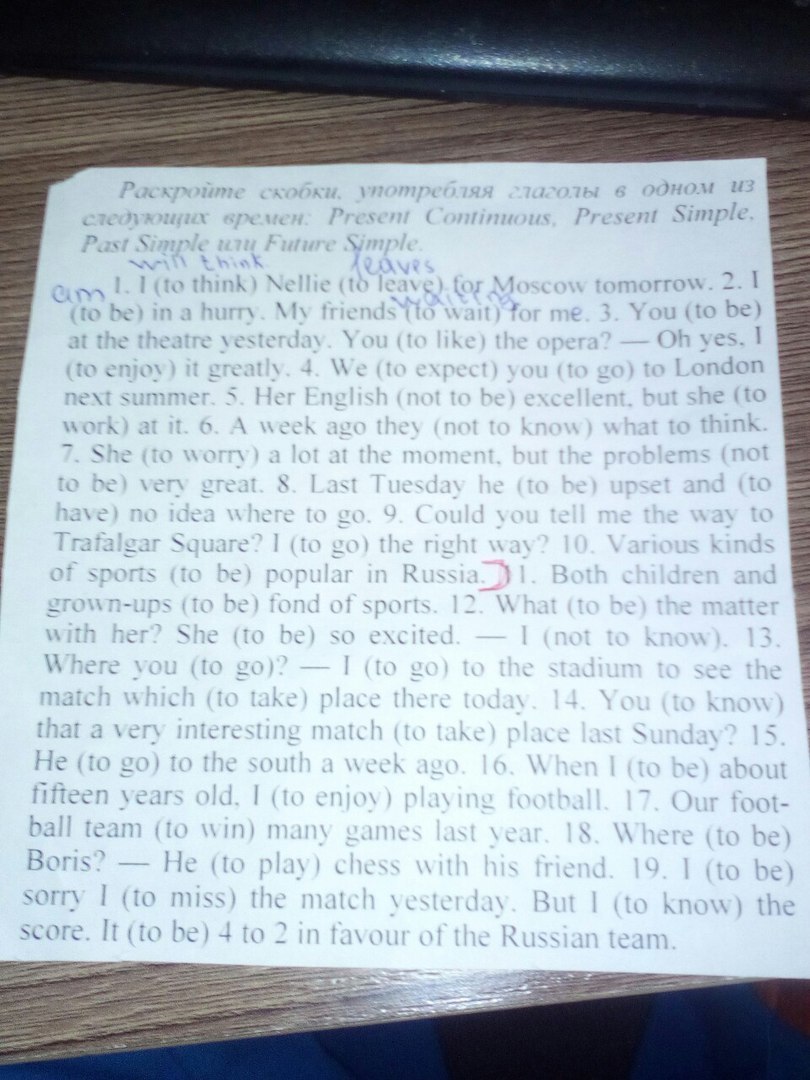 Раскройте скобки, употребляя глаголы в одном из
следующих времен: Present Continuous, Present Simple,
Past Simple или Future Simple.
will think leaves
1. I (to think) Nellie (to leave) for Moscow tomorrow. 2. I
am waiting
(to be) in a hurry. My friends (to wait) for me. 3. You (to be)
at the theatre yesterday. You (to like) the opera? — Oh yes, I
(to enjoy) it greatly. 4. We (to expect) you (to go) to London
next summer. 5. Her English (not to be) excellent, but she (to
work) at it. 6. A week ago they (not to know) what to think.
7. She (to worry) a lot at the moment, but the problems (not
to be) very great. 8. Last Tuesday he (to be) upset and (to
have) no idea where to go. 9. Could you tell me the way to
Trafalgar Square? I (to go) the right way? 10. Various kinds
of sports (to be) popular in Russia. 11. Both children and
grown-ups (to be) fond of sports. 12. What (to be) the matter
with her? She (to be) so excited. — I (not to know). 13.
Where you (to go)? — I (to go) to the stadium to see the
match which (to take) place there today. 14. You (to know)
that a very interesting match (to take) place last Sunday? 15.
He (to go) to the south a week ago. 16. When I (to be) about
fifteen years old, I (to enjoy) playing football. 17. Our foot-
ball team (to win) many games last year. 18. Where (to be)
Boris? — He (to play) chess with his friend. 19. I (to be)
sorry I (to miss) the match yesterday. But I (to know) the
score. It (to be) 4 to 2 in favour of the Russian team.